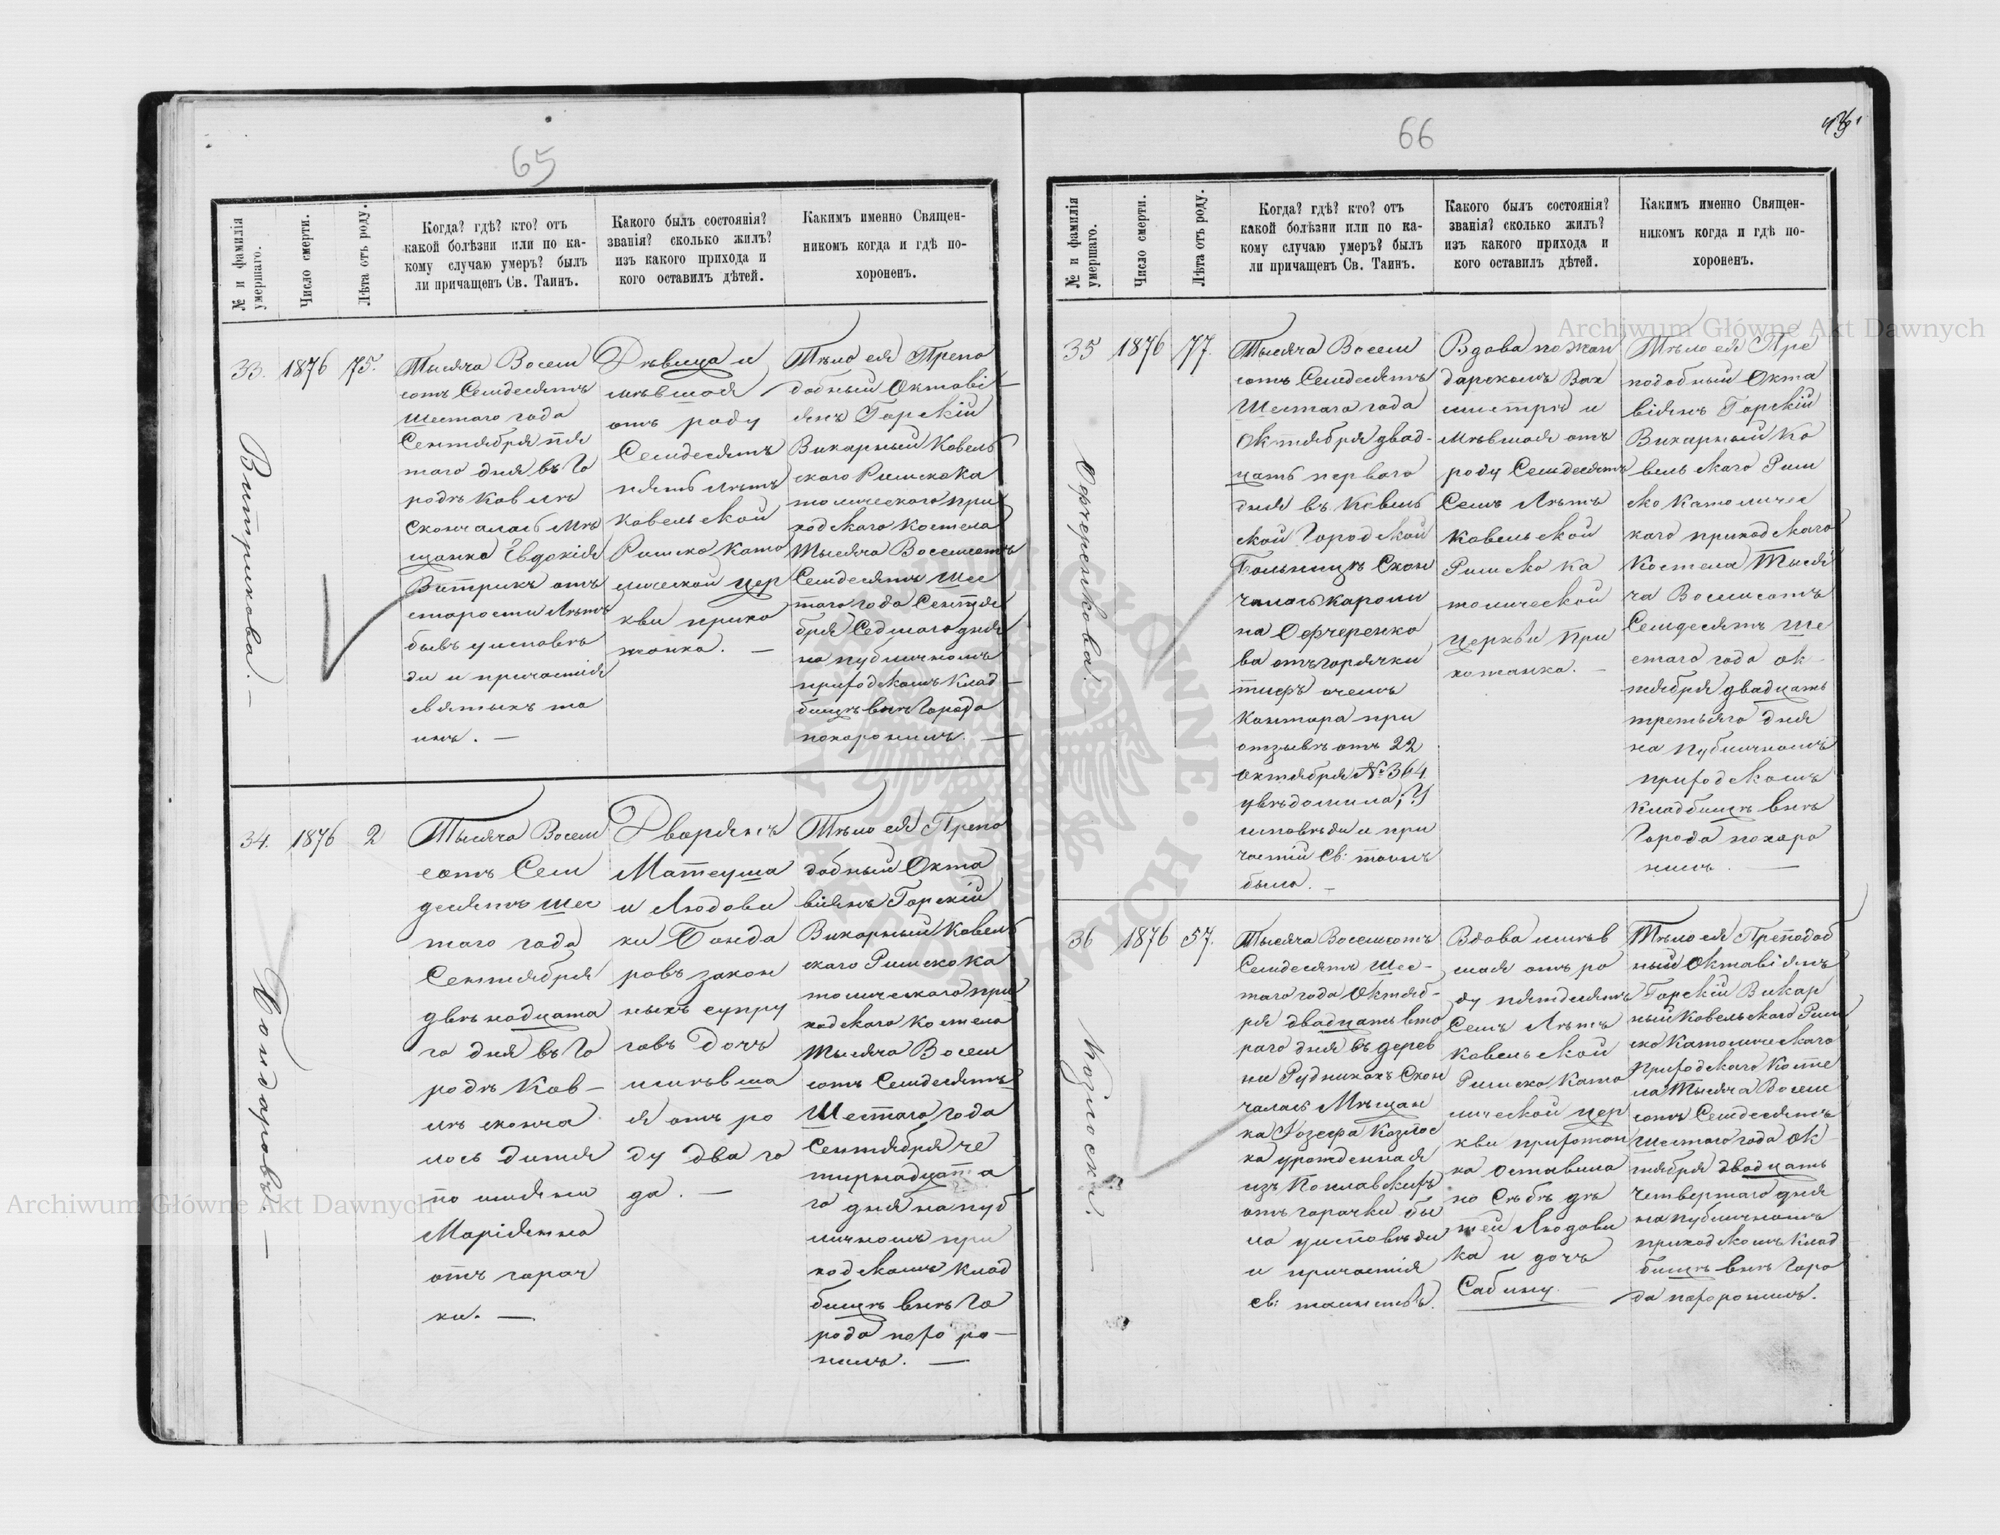 65
№ и фамилія умершаго.
Число смерти.
Лѣта отъ роду.
Когда? гдѣ? кто? отъ
какой болѣзни или по ка-
кому случаю умеръ? былъ
ли причащенъ Св. Таинъ.
Какого былъ состоянія?
званія? сколько жилъ?
изъ какого прихода и
кого оставилъ дѣтей.
Какимъ именно Священ-
никомъ когда и гдѣ по-
хороненъ.
33.
Витрикова. —
1876
75.
Тысяча Восем
сотъ Семдесятъ
Шестаго года
Сентября пя
таго дня въ Го
родѣ Ковлѣ
Скончалась Мѣ
щанка Евдокія
Витрикъ отъ
старости лѣтъ
бывъ у исповѣ
ди и причастія
святыхъ та
инъ. —
Дѣвица и
мѣвшая
отъ роду
Семдесятъ
пять лѣтъ
Ковельской
Римско Като
лической цер
кви прихо
жанка. —
Тѣло ея Препо
добный Октаві
янъ Горскій
Викарный Ковель
скаго Римскока
толическаго при
ходскаго Костела
Тысяча Восемсотъ
Семдесятъ Шес
таго года Сентя
бря Седмаго дня
на публичномъ
приходскомъ Клад
бищѣ внѣ Города
похоронилъ. —
34.
Бондаровъ. —
1876
2
Тысяча Восем
сотъ Сем
десятъ шес
таго года
Сентября
двѣнадцата
го дня въ Го
родѣ Ков-
лѣ сконча
лось дитя
по имяни
Маріянна
отъ горяч
ки. —
Дворянъ
Матеуша
и Людови
ки Бонда
ровъ закон
ныхъ супру
говъ Дочь
имѣвша
я отъ ро
ду два го
да. —
Тѣло ея Препо
добный Окта
віянъ Горскій
Викарный Ковель
скаго Римскока
толическаго при
ходскаго Костела
Тысяча Восем
сотъ Семдесятъ
Шестаго года
Сентября че
тырнадцата
го дня на пуб
личномъ при
ходскомъ Клад
бищѣ внѣ Го
рода похоро-
нилъ. —
66
№ и фамилія умершаго.
Число смерти.
Лѣта отъ роду.
Когда? гдѣ? кто? отъ
какой болѣзни или по ка-
кому случаю умеръ? былъ
ли причащенъ Св. Таинъ.
Какого былъ состоянія?
званія? сколько жилъ?
изъ какого прихода и
кого оставилъ дѣтей.
Какимъ именно Священ-
никомъ когда и гдѣ по-
хороненъ.
35
Офчеренкова.
1876
77.
Тысяча Восем
сотъ Семдесятъ
Шестаго года
Октября двад-
цать перваго
дня въ Ковель
ской Городской
Больницѣ Скон
чалась Кароли
на Офчеренко
ва отъ горячки
тифъ о чемъ
Контора при
отзывѣ отъ 22
Октября № 364
увѣдомила; У
исповѣди и при
частій Св: таинъ
была. —
Вдова по жан
дарскомъ Вах
мистрѣ и
мѣвшая отъ
роду Семдесятъ
Семь Лѣтъ
Ковельской
Римско ка
толической
церкви При
хожанка. —
Тѣло ея Пре
подобный Окта
віянъ Горскій
Викарный Ко
вельскаго Рим
ско Католичес
каго приходскаго
Костела Тыся
ча Восемсотъ
Семдесятъ Ше
стаго года Ок-
тября двадцать
третьяго дня
на публичномъ
приходскомъ
Кладбищѣ внѣ
Города похоро
нилъ. —
36
1876
57.
Тысяча Восемсотъ
Семдесятъ Шес-
таго года Октяб-
ря двадцать вто
раго дня въ дерев
ни Рудникахъ Скон
чалась Мѣщан
ка Іозефа
ка урожденная
изъ
отъ горячки бы
ла у исповѣди
и причастія
св: таинствъ.
Вдова имѣв
шая отъ ро
ду пятдесятъ
Семь Лѣтъ
Ковельской
Римско Като
лической цер
кви прихожан
ка оставила
по Себѣ дѣ
тей Людови
ка и дочь
Сабину. —
Тѣло ея Преподоб
ный Октавіянъ
Горскій Викар
ный Ковельскаго Рим
ско Католическаго
Приходскаго Косте
ла Тысяча Восем
сотъ Семдесятъ
Шестаго года Ок-
тября двадцать
Четвертаго дня
на публичномъ
приходскомъ Клад
бищѣ внѣ Горо
да похоронилъ.
Archiwum Główne Akt Dawnych
Archiwum Główne Akt Dawnych